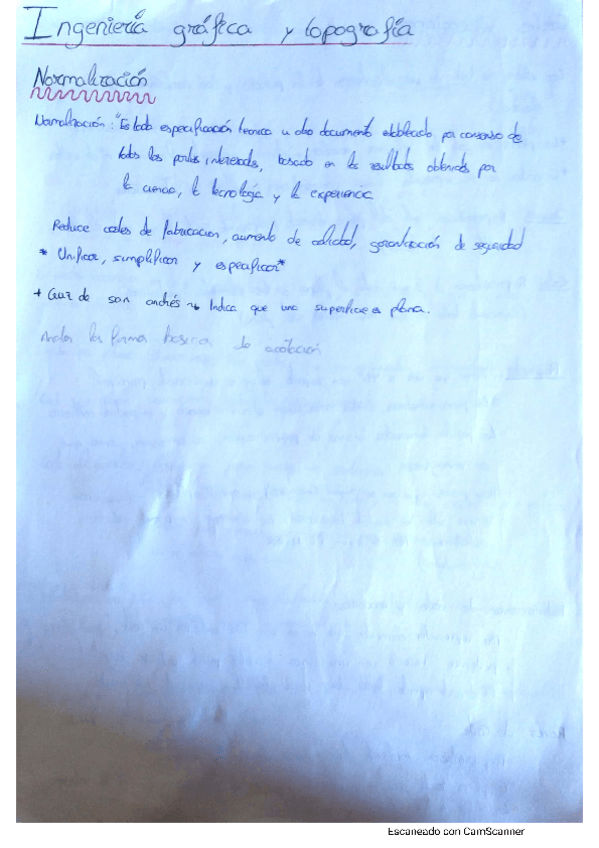 Ingeniería gráfica y topografía
Normalización
Normalización: "Es toda especificación técnica u otro documento establecido por consenso de
todas las partes interesadas, basado en los resultados obtenidos por
la ciencia, la tecnología y la experiencia
Reduce costes de fabricación, aumento de calidad, garantización de seguridad
* Unificar, simplificar y especificar*
+ Cruz de san andrés → Indica que una superficie es plana.
las forma basica de acotación
Escaneado con CamScanner